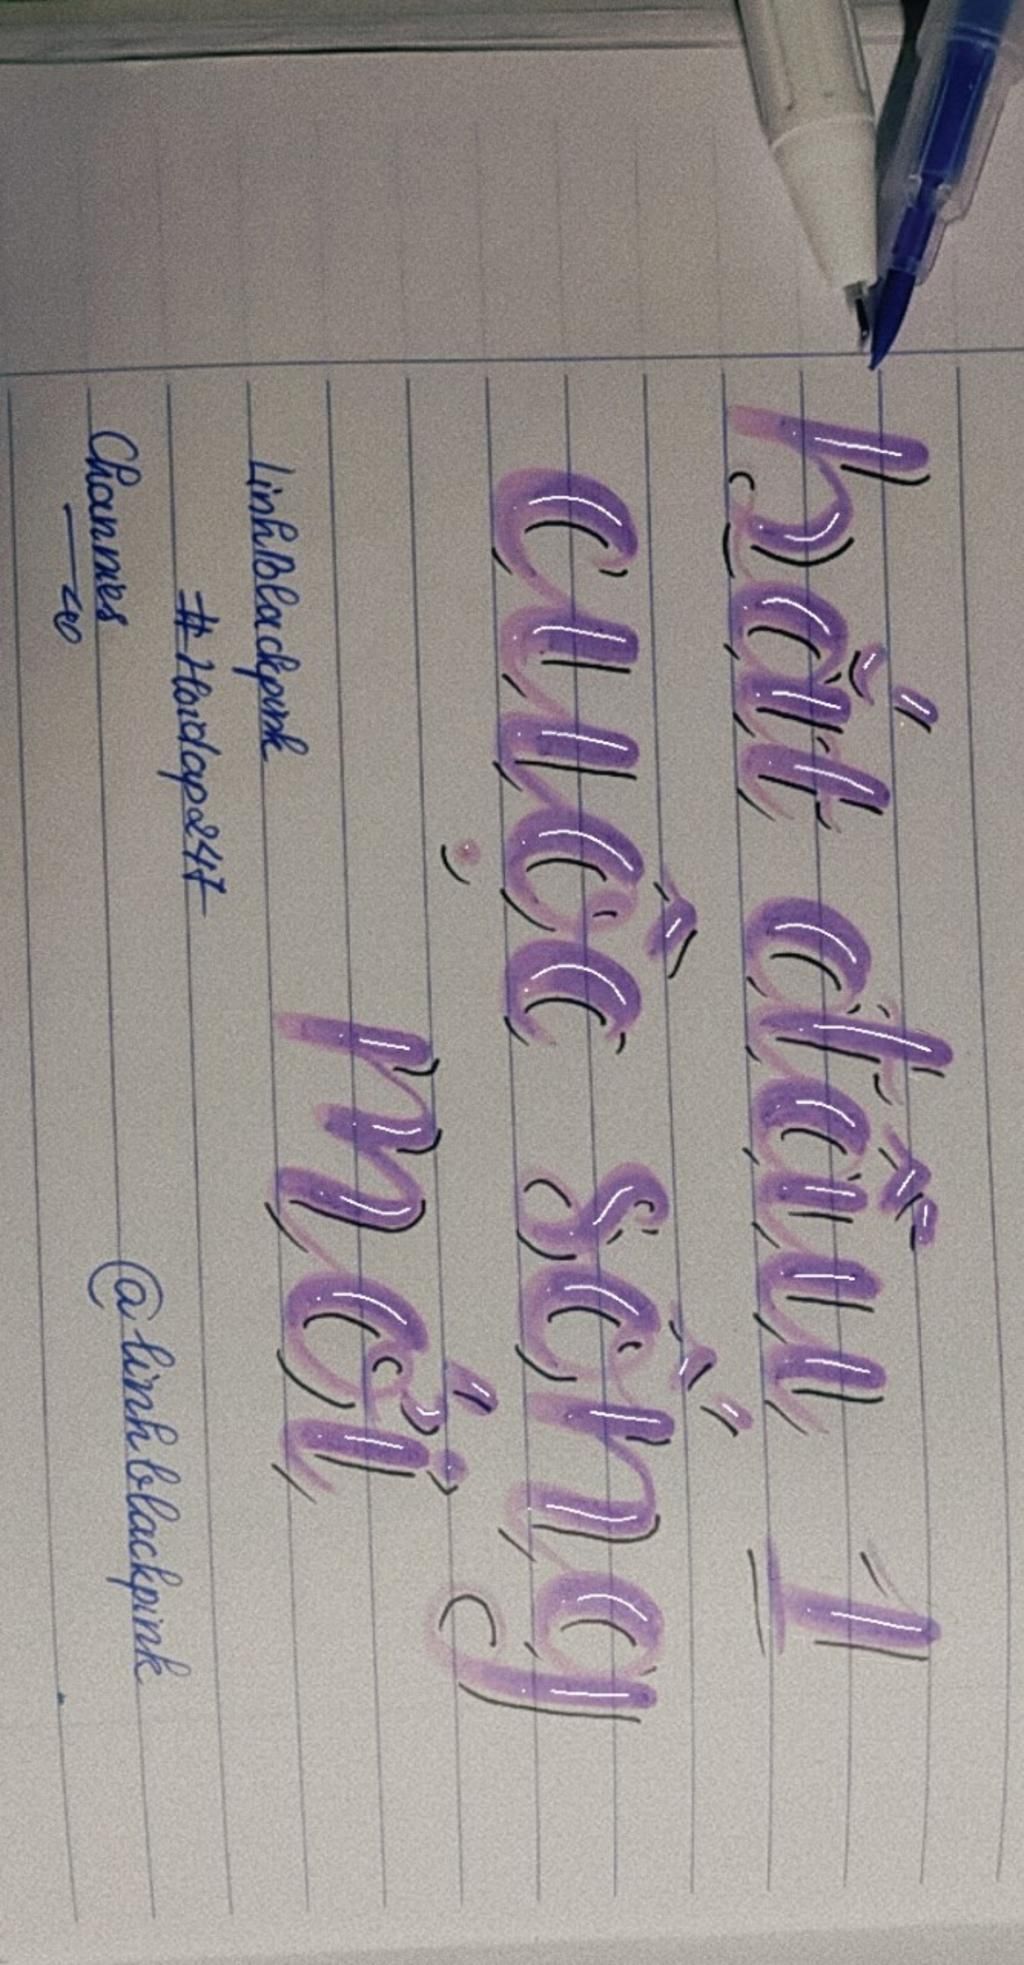 bắt đầu 1
cuộc sống
mới
Linhblackpink
#Hoidap247
Channies
@linhblackpink